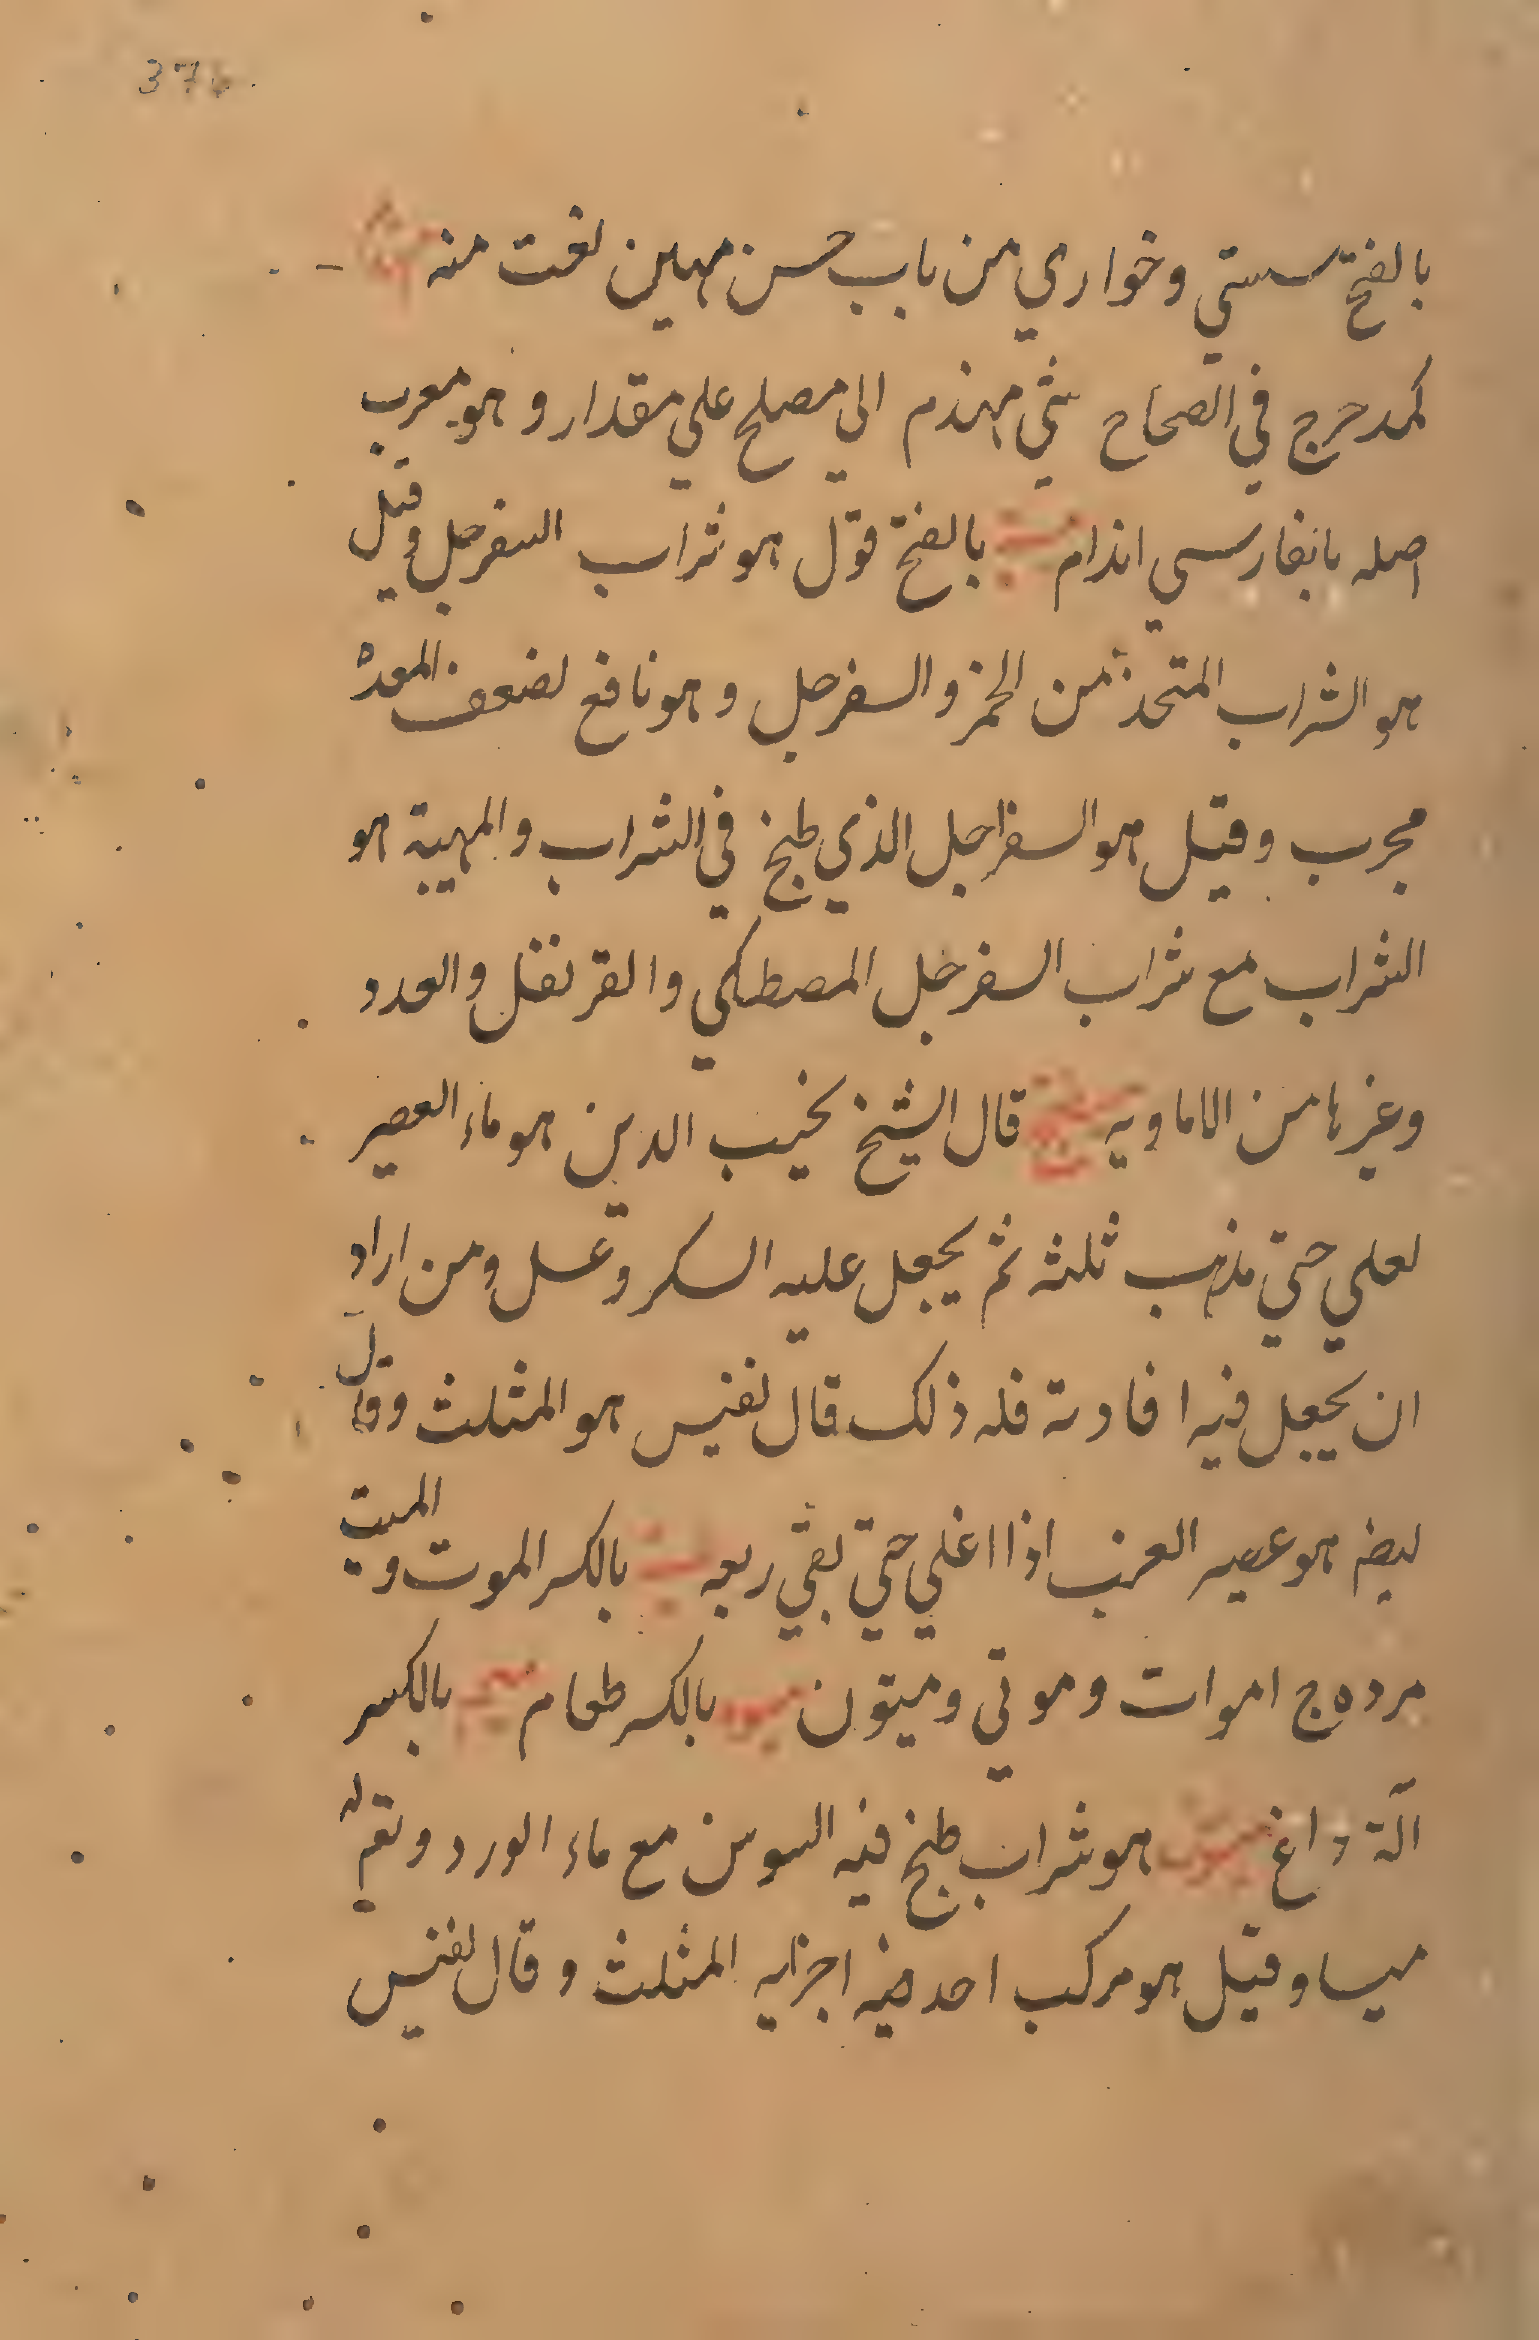 376
بالفتح سستي وخواري من باب حسن مهين لغت منه
كمدحرج في الصحاح شي مهندم الي مصلح علي مقدار و هو معرب
اصله بانفارسي اندام بالفتح قول هو شراب السفرجل وقيل
هو الشراب المتخذ من الخمر و السفرجل و هو نافع لضعف المعدة
مجرب وقيل هو السفراجل الذي طبخ في الشراب والميبة هو
الشراب مع شراب السفرجل المصطكي والقرنفل والعود
وغيرها من الاماويه قال الشيخ نجيب الدين هو ماء العصير
لعلي حتي يذهب ثلثه ثم يجعل عليه السكر وعسل ومن اراد
ان يجعل فيه افاوية فله ذلك قال نفيس هو المثلث وقال
بعض هو عصير العنب اذا اغلي حتي بقي ربعه بالكسر الموت و الميت
مرده ج اموات وموتي وميتون ميره بالكسر طعام ميسم بالكسر
آلة داغ هو شراب طبخ فيه السوسن مع ماء الورد و
ميسا وقيل هو مركب احد اجزايه المثلث وقال نفيس